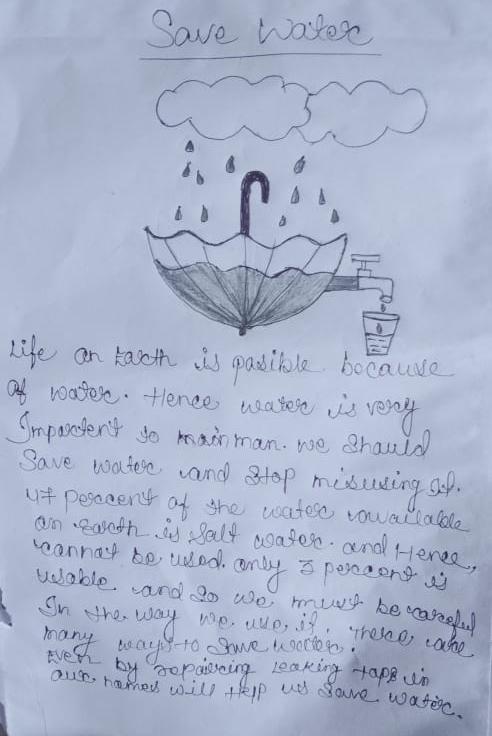 Save Water
Life an Earth is pasible because
of water. Hence water is very
Impartent to main man. we should
Save water and stop misusing it.
47 percent of the water available
an Earth is salt water. and Hence,
cannat be used. only 3 percent is
usable and so we must be careful
In the way we use it. There are
many ways to Save water.
Even by repairing leaking taps in
aur homes will help us save water.